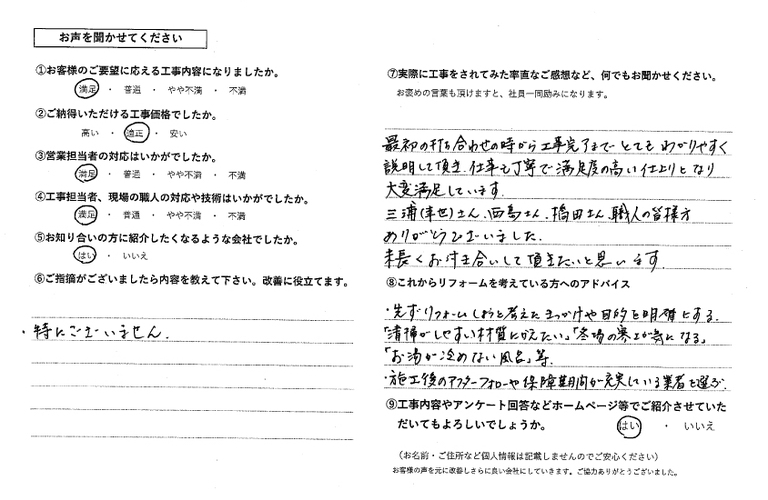 お声を聞かせてください
①お客様のご要望に応える工事内容になりましたか。
満足 ・ 普通 ・ やや不満 ・ 不満
②ご納得いただける工事価格でしたか。
高い ・ 適正 ・ 安い
③営業担当者の対応はいかがでしたか。
満足 ・ 普通 ・ やや不満 ・ 不満
④工事担当者、現場の職人の対応や技術はいかがでしたか。
満足 ・ 普通 ・ やや不満 ・ 不満
⑤お知り合いの方に紹介したくなるような会社でしたか。
はい ・ いいえ
⑥ご指摘がございましたら内容を教えて下さい。改善に役立てます。
・特にございません。
⑦実際に工事をされてみた率直なご感想など、何でもお聞かせください。
お褒めの言葉も頂けますと、社員一同励みになります。
最初の打ち合わせの時から工事完了までとてもわかりやすく
説明して頂き、仕事も丁寧で満足度の高い仕上りとなり
大変満足しています。
三浦(幸也)さん、西島さん、橋田さん、職人の皆様方
ありがとうございました。
末長くお付き合いして頂きたいと思います。
⑧これからリフォームを考えている方へのアドバイス
・先ずリフォームしようと考えたきっかけや目的を明確にする。
「清掃がしやすい材質にかえたい」「冬場の寒さが気になる」
「お湯が冷めない風呂」等。
・施工後のアフターフォローや保障期間が充実している業者を選ぶ。
⑨工事内容やアンケート回答などホームページ等でご紹介させていた
だいてもよろしいでしょうか。 はい ・ いいえ
(お名前・ご住所など個人情報は記載しませんのでご安心ください)
お客様の声を元に改善しさらに良い会社にしていきます。ご協力ありがとうございました。